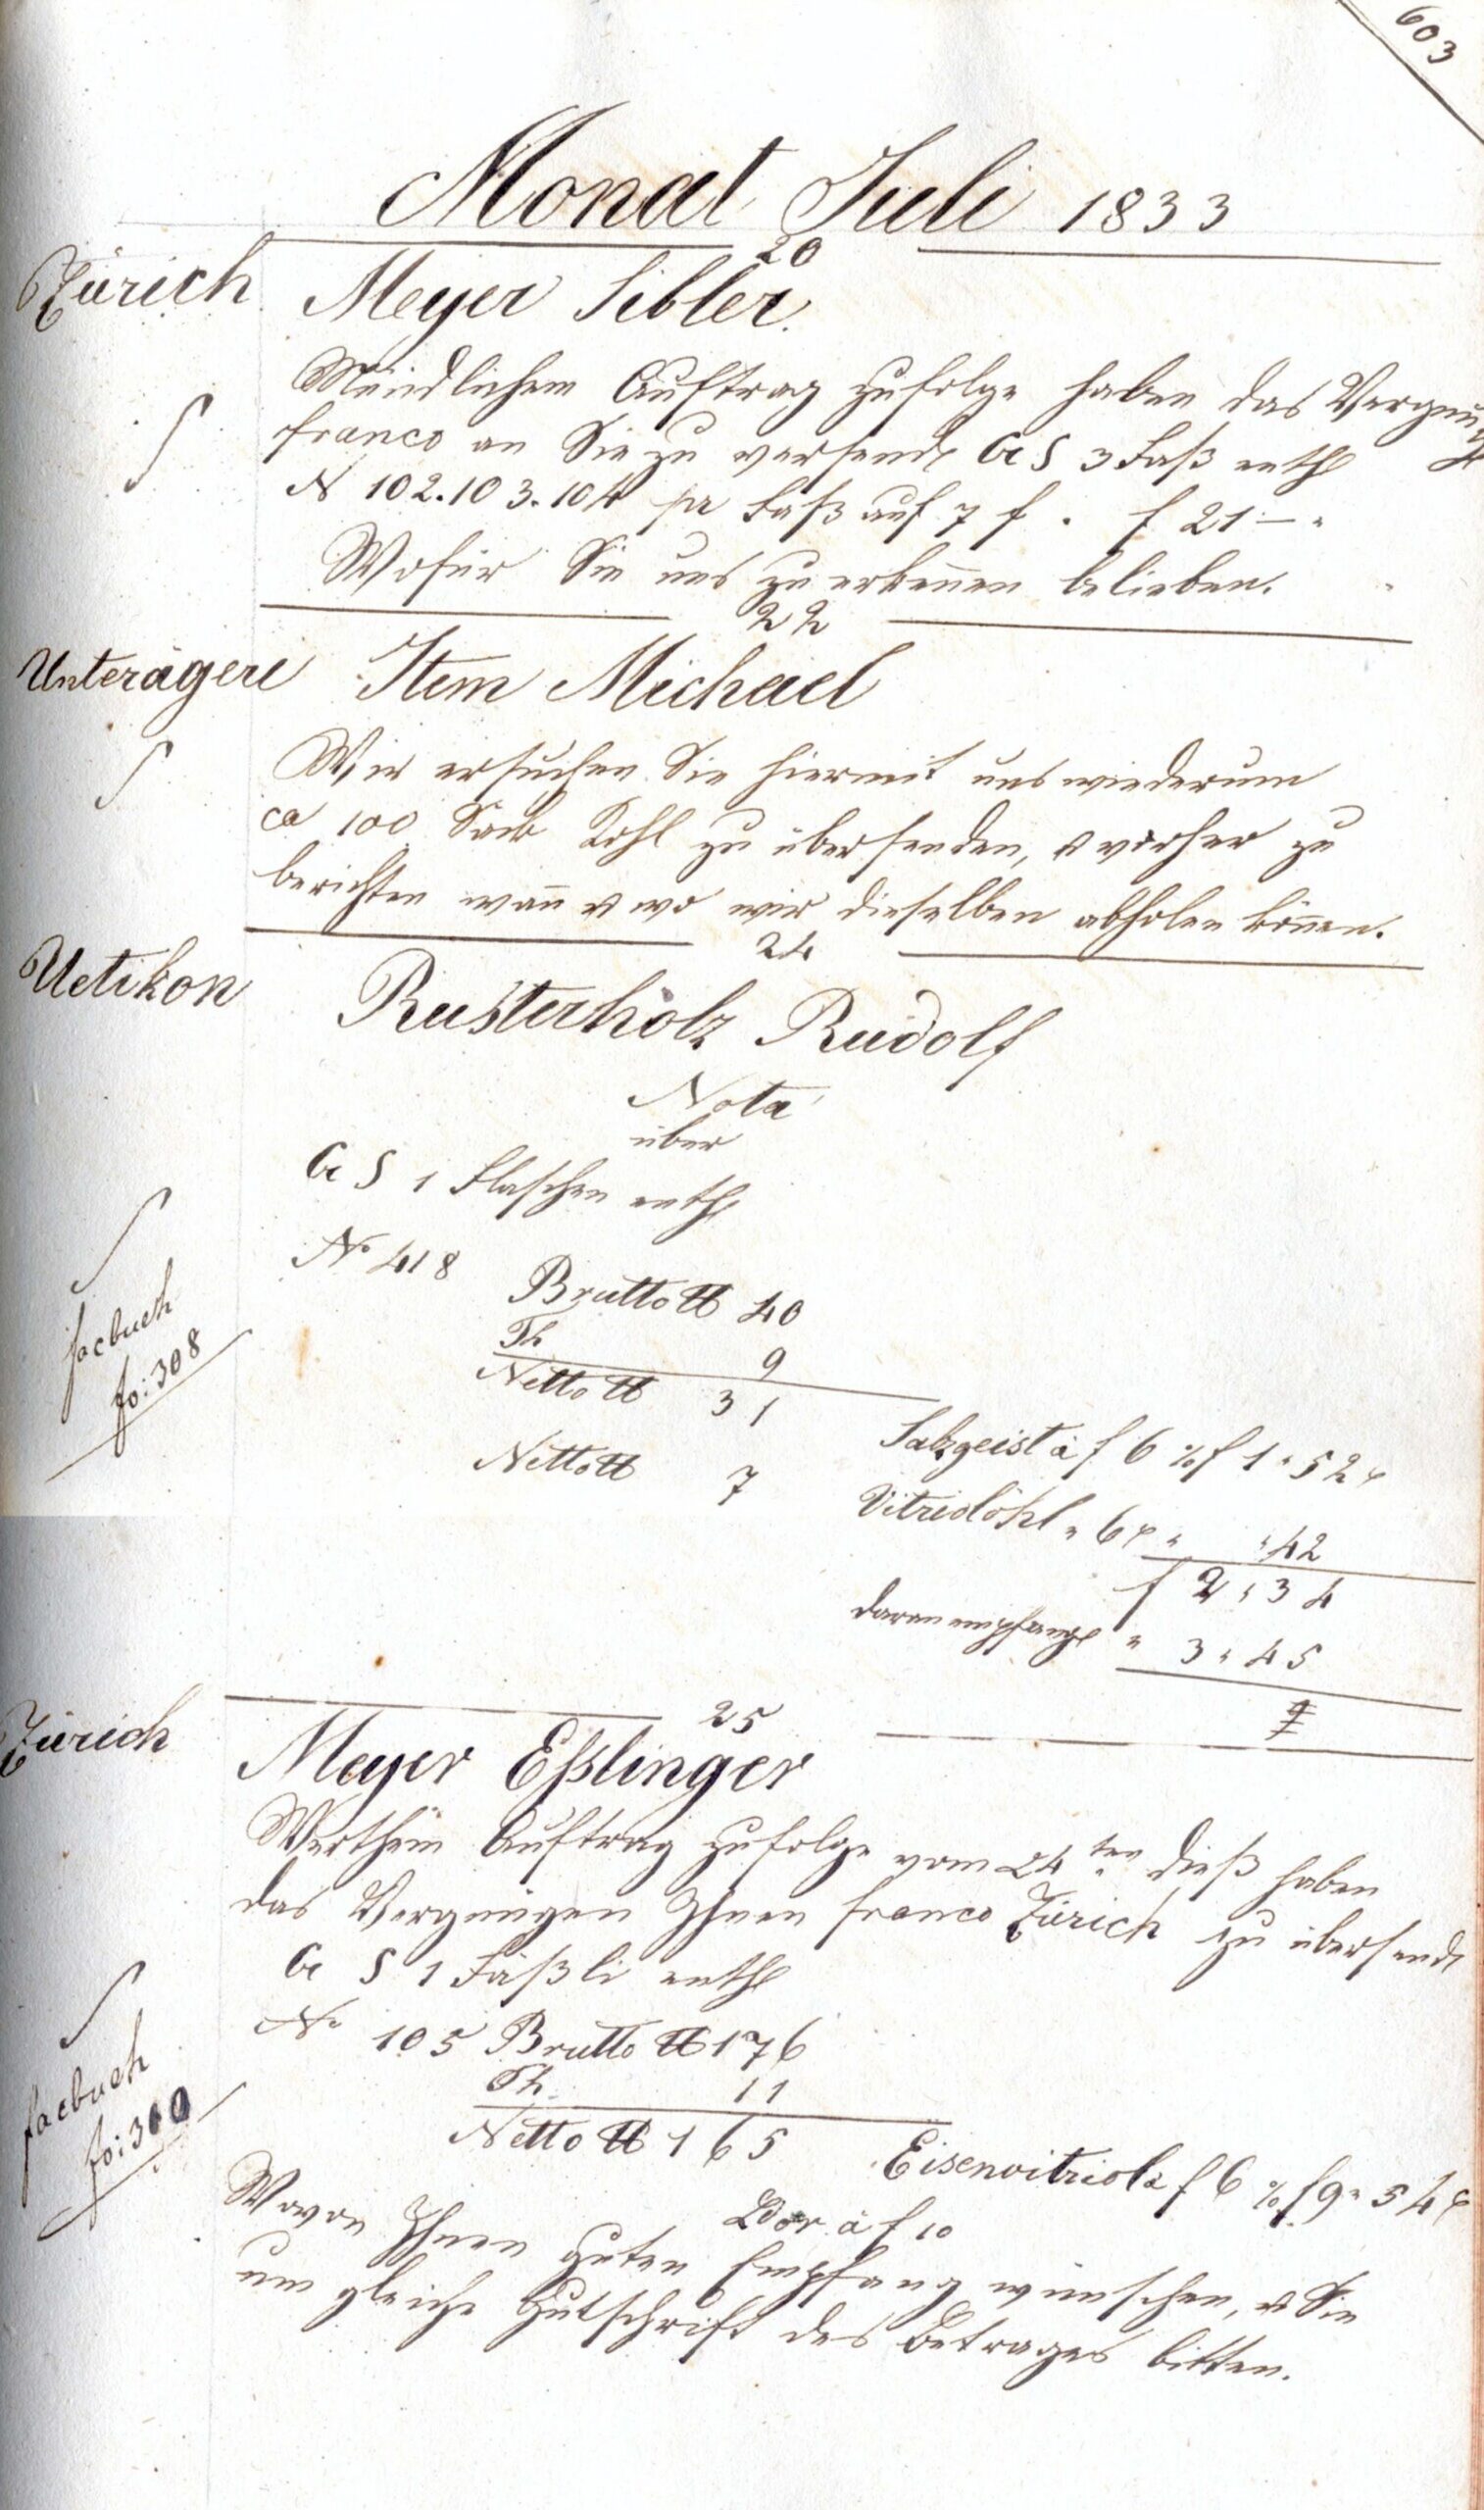 603
Monat Juli 1833
20
Zürich Meyer Sibler.
Mündlichem Auftrag zufolge haben das Vergnüg
franco an Sie zu versend G S 3 Faß enth
N 102. 103. 104 pr Faß auf 7 f. f 21 —
Wofür Sie uns zu erkennen belieben.
22
Unterägeri Item Michael
Wir ersuchen Sie hiermit uns wiederum
ca 100 Sack Kohl zu übersenden, u vorher zu
berichten wañ u wo wir dieselben abholen köñen.
24
Uetikon Rusterholz Rudolf
Nota
über
G S 1 Flaschen enth
No 418
Brutto ℔ 40
Th 9
Netto ℔ 31 Salzgeist à f 6 % f 1 " 52
Netto ℔ 7 Vitriolöhl " 6 " " 42
f 2 " 34
daran empfang " 3 " 45
facbuch
fo: 308
25
Zürich Meyer Esslinger
Werthem Auftrag zufolge vom 24ten dieß haben
das Vergnügen Ihnen franco Zürich zu übersend
G S 1 Fäßli enth
No 105 Brutto ℔ 176
Th 11
Netto ℔ 165 Eisenvitriol à f 6 % f 9 " 54
à f 10
Wovon Ihnen guten Empfang wünschen, u Sie
um gleiche Gutschrift des Betrages bitten.
facbuch